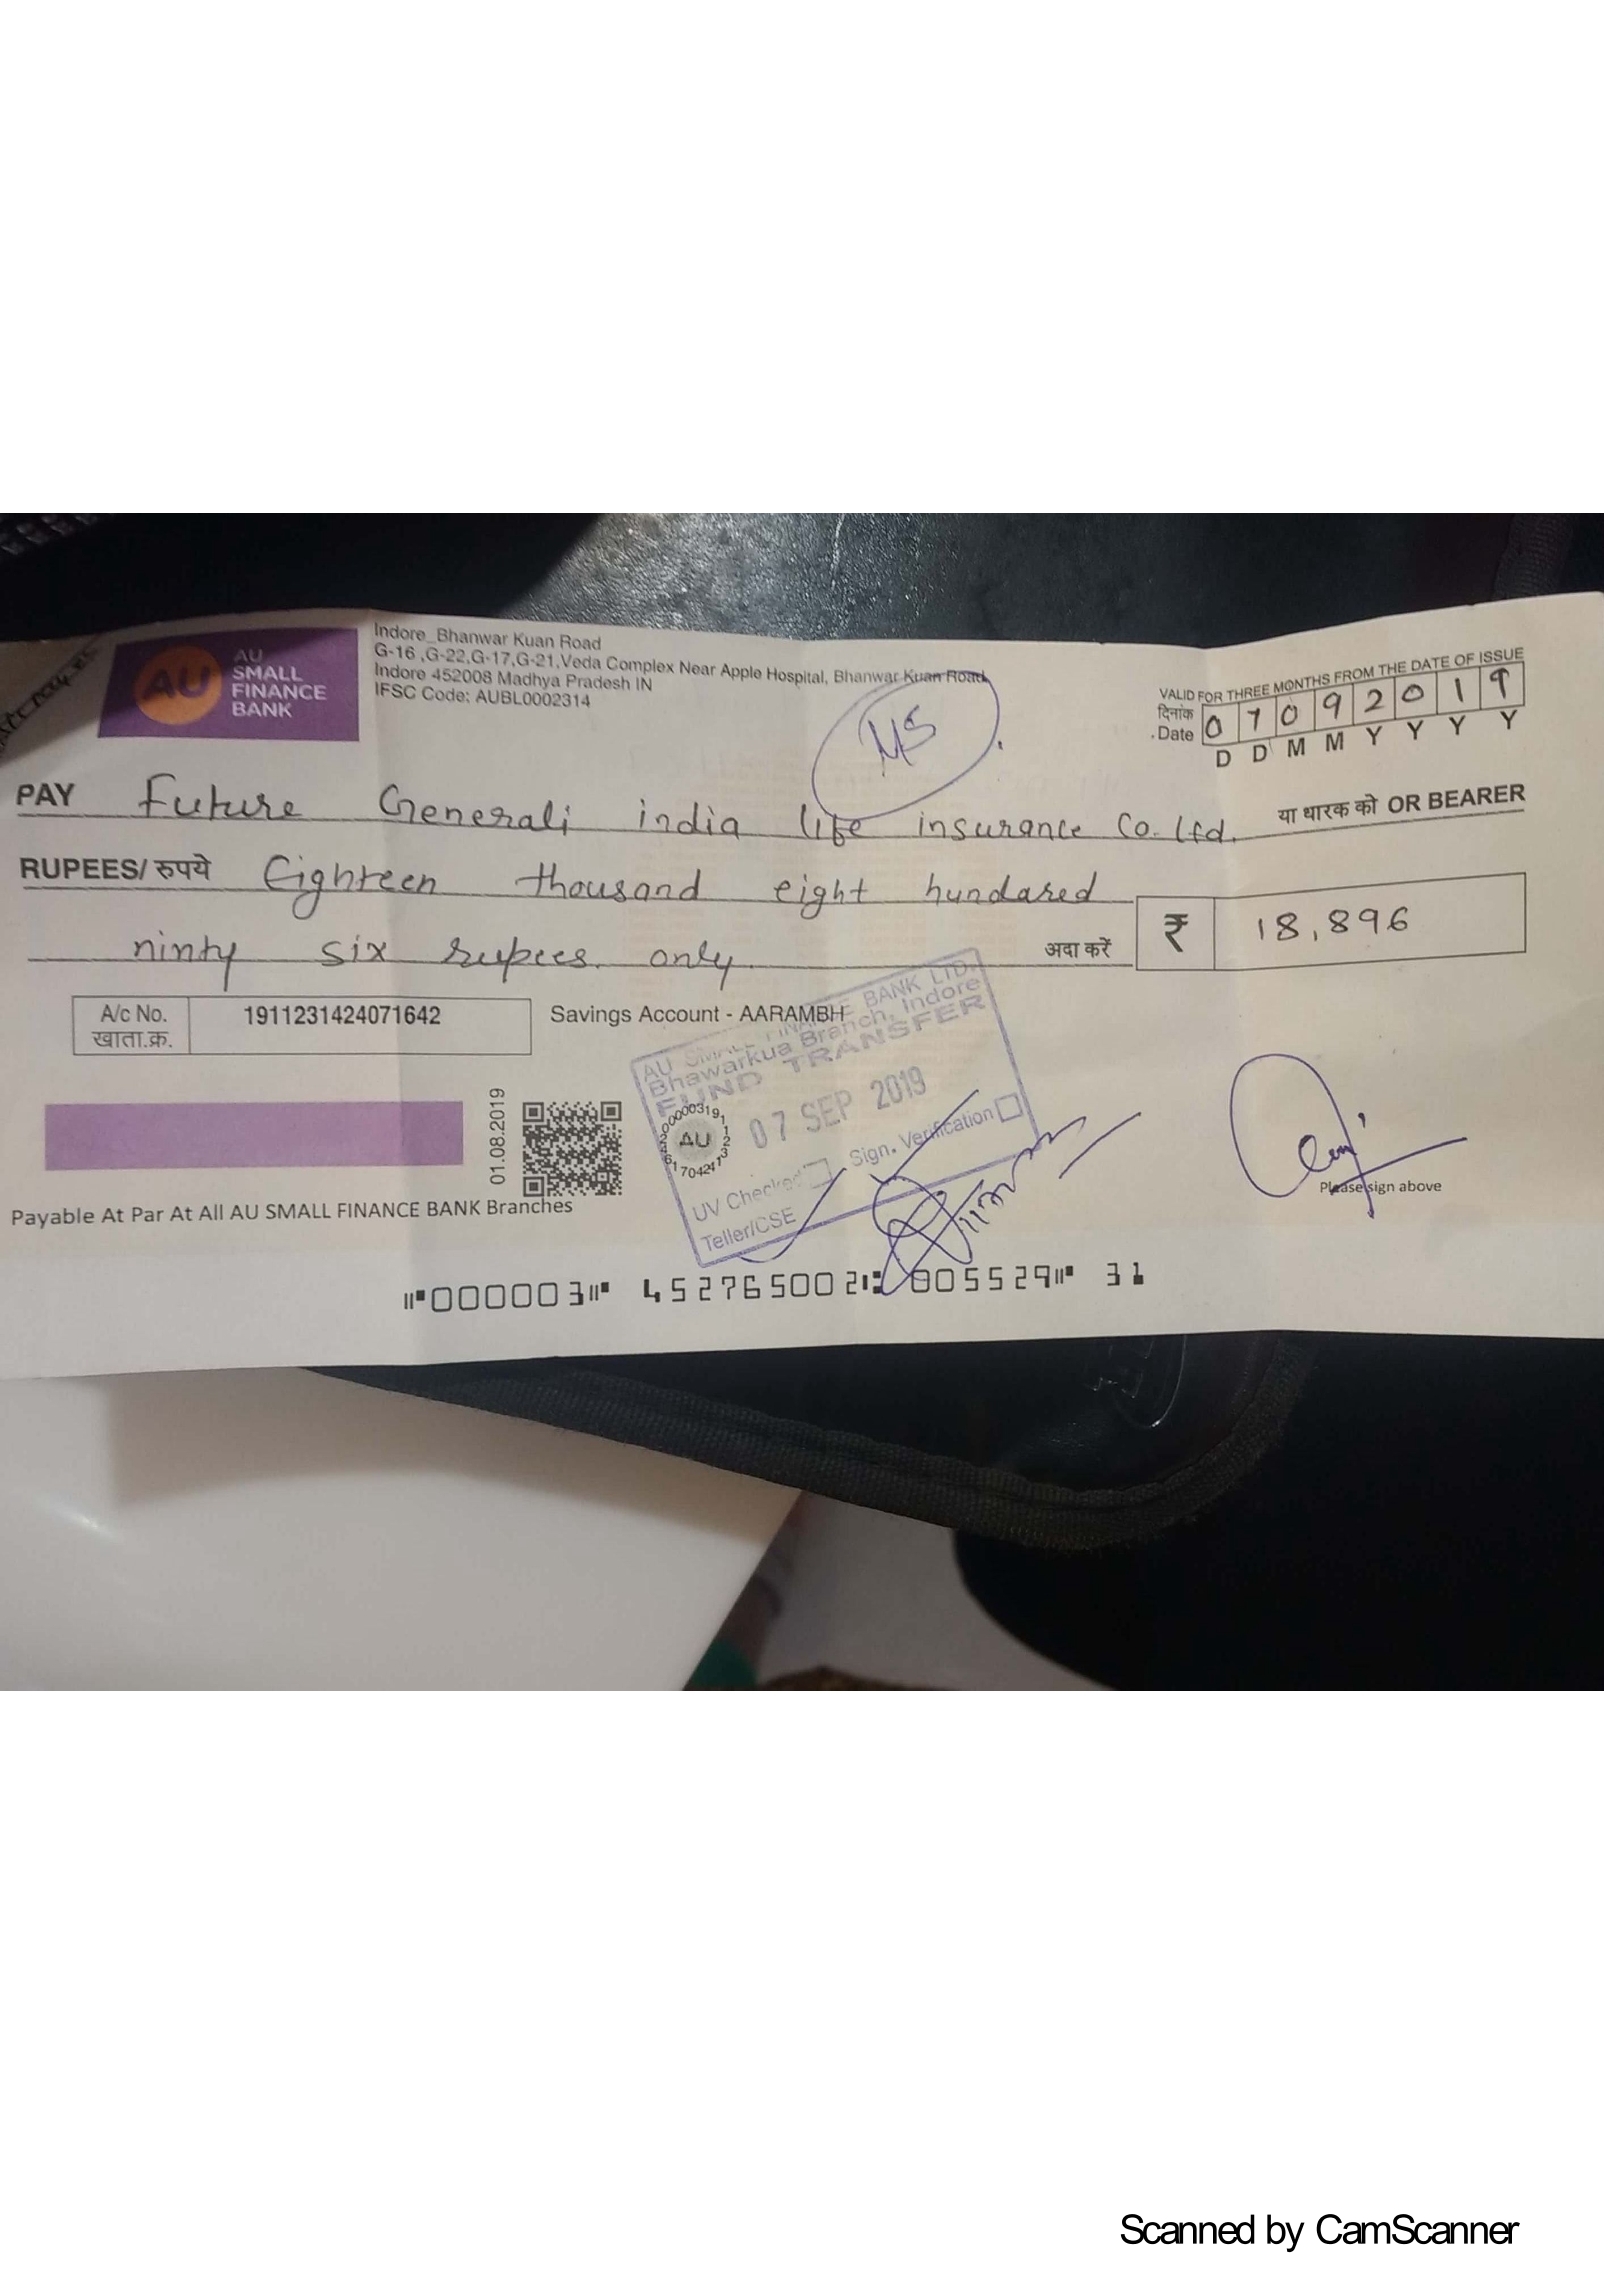 AU
AU
SMALL
FINANCE
BANK
Indore_Bhanwar Kuan Road
G-16 ,G-22,G-17,G-21,Veda Complex Near Apple Hospital, Bhanwar Kuan Road,
Indore 452008 Madhya Pradesh IN
IFSC Code: AUBL0002314
MS
VALID FOR THREE MONTHS FROM THE DATE OF ISSUE
दिनांक
Date 0 7 0 9 2 0 1 9
D D M M Y Y Y Y
PAY Future Generali india life insurance Co. Ltd. या धारक को OR BEARER
RUPEES/ रुपये Eighteen thousand eight hundared
ninty six rupees only अदा करें ₹ 18,896
A/c No. 1911231424071642 Savings Account - AARAMBH
खाता.क्र.
AU SMALL FINANCE BANK LTD.
Bhawarkua Branch, Indore
FUND TRANSFER
07 SEP 2019
UV Checked Sign. Verification
Teller/CSE
01.08.2019
AU
Please sign above
Payable At Par At All AU SMALL FINANCE BANK Branches
⑈000003⑈ 452765002⑆ 005529⑈ 31
Scanned by CamScanner